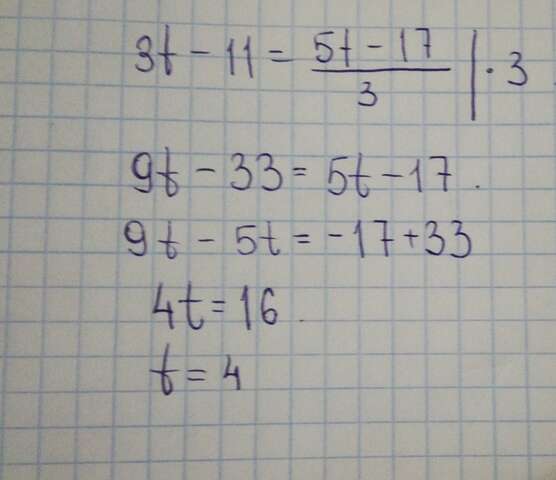 3t - 11 = (5t - 17)/3 | · 3
9t - 33 = 5t - 17.
9t - 5t = -17 + 33
4t = 16.
t = 4